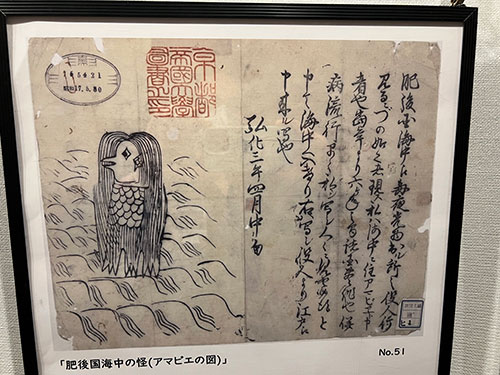 肥後国海中え毎夜光物出ル所之役人行
見るニづの如く者現ス私ハ海中ニ住アマビヱト申
者也当年より六ヶ年之間諸国豊作也併
病流行早々私ヲ写シ人々ニ見せ候得と
申て海中へ入けり右写シ役人より江戸え
申来ル写也
弘化三年四月中旬
京都
帝國大學
圖書之印
「肥後国海中の怪(アマビエの図)」
No.51